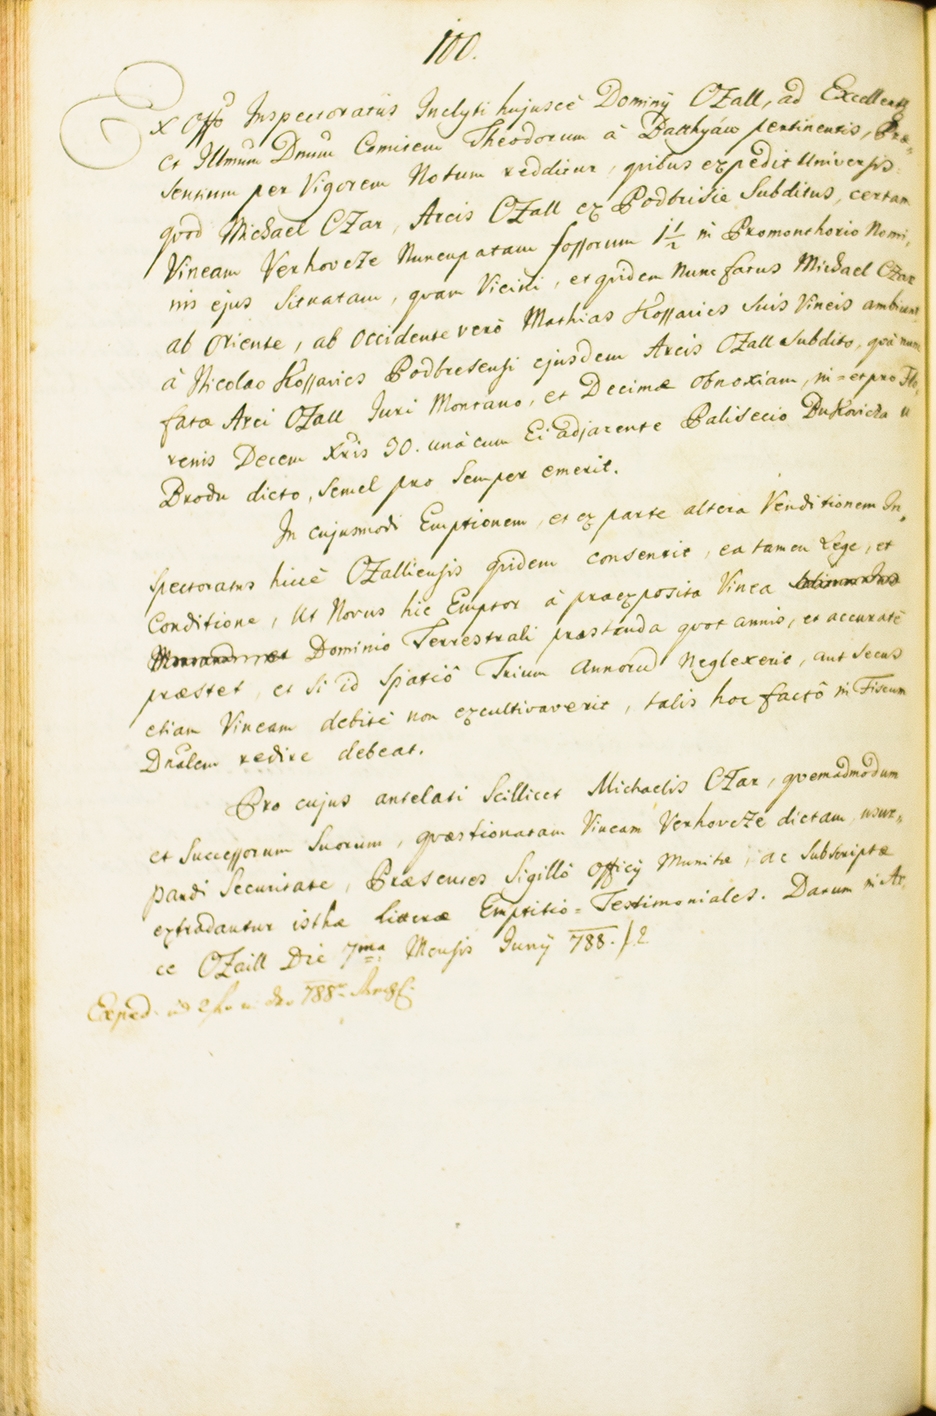 100.
Ex Offo Inspectoratûs Inclyti hujuscè Dominÿ OZall, ad Excellents
et Illmum Dnum Comitem Theodorum à Batthyán pertinentis, Præ=
sentium per Vigorem Notum redditur, quibus expedit Universis
quod Michael CZar, Arcis OZall ex Podbrisie Subditus, certam
Vineam VerhovcZe Nuncupatam fossorum 1 1/2 in Promonthorio Nomi,
nis ejus Situatam, quam Vicini, et quidem Nunc fatus Michael CZar
ab Oriente, ab Occidente verò Mathias Kossarics Suis Vineis ambiunt,
à Nicolao Kossarics Podbresensi ejusdem Arcis OZall Subdito, quà nunc
fatæ Arci OZall Juri Montano, et Decimæ obnoxiam, in= et pro Flo,
renis Decem Xris 30. unà cum Ei adjacente Palisecio u
Brodu dicto, Semel pro Semper emerit.
In cujusmodi Emptionem, et ex parte altera Venditionem In,
spectoratus hicce OZalliensis quidem consentit, ea tamen Lege, et
Conditione, Ut Novus hic Emptor à præexposita Vinea
Dominio Terrestrali præstanda quot annis, et accuratè
præstet, et Si id Spatiô Trium Annorum Neglexerit, aut Secus
etiam Vineam debitè non excultivaverit, talis hoc factô in Fiscum
Dnalem redire debeat.
Pro cujus antelati Scillicet Michaelis CZar, quemadmodum
et Successorum Suorum, quæstionatam Vineam VerhovcZe dictam, usur,
pandi Securitate, Præsentes Sigillô Officÿ Munitæ, ac Subscriptæ
extradantur isthæ Litteræ Emptitio=Testimoniales. Datum in Ar,
ce OZaill Die 7ma Mensis Junÿ 788.
Exped. 788